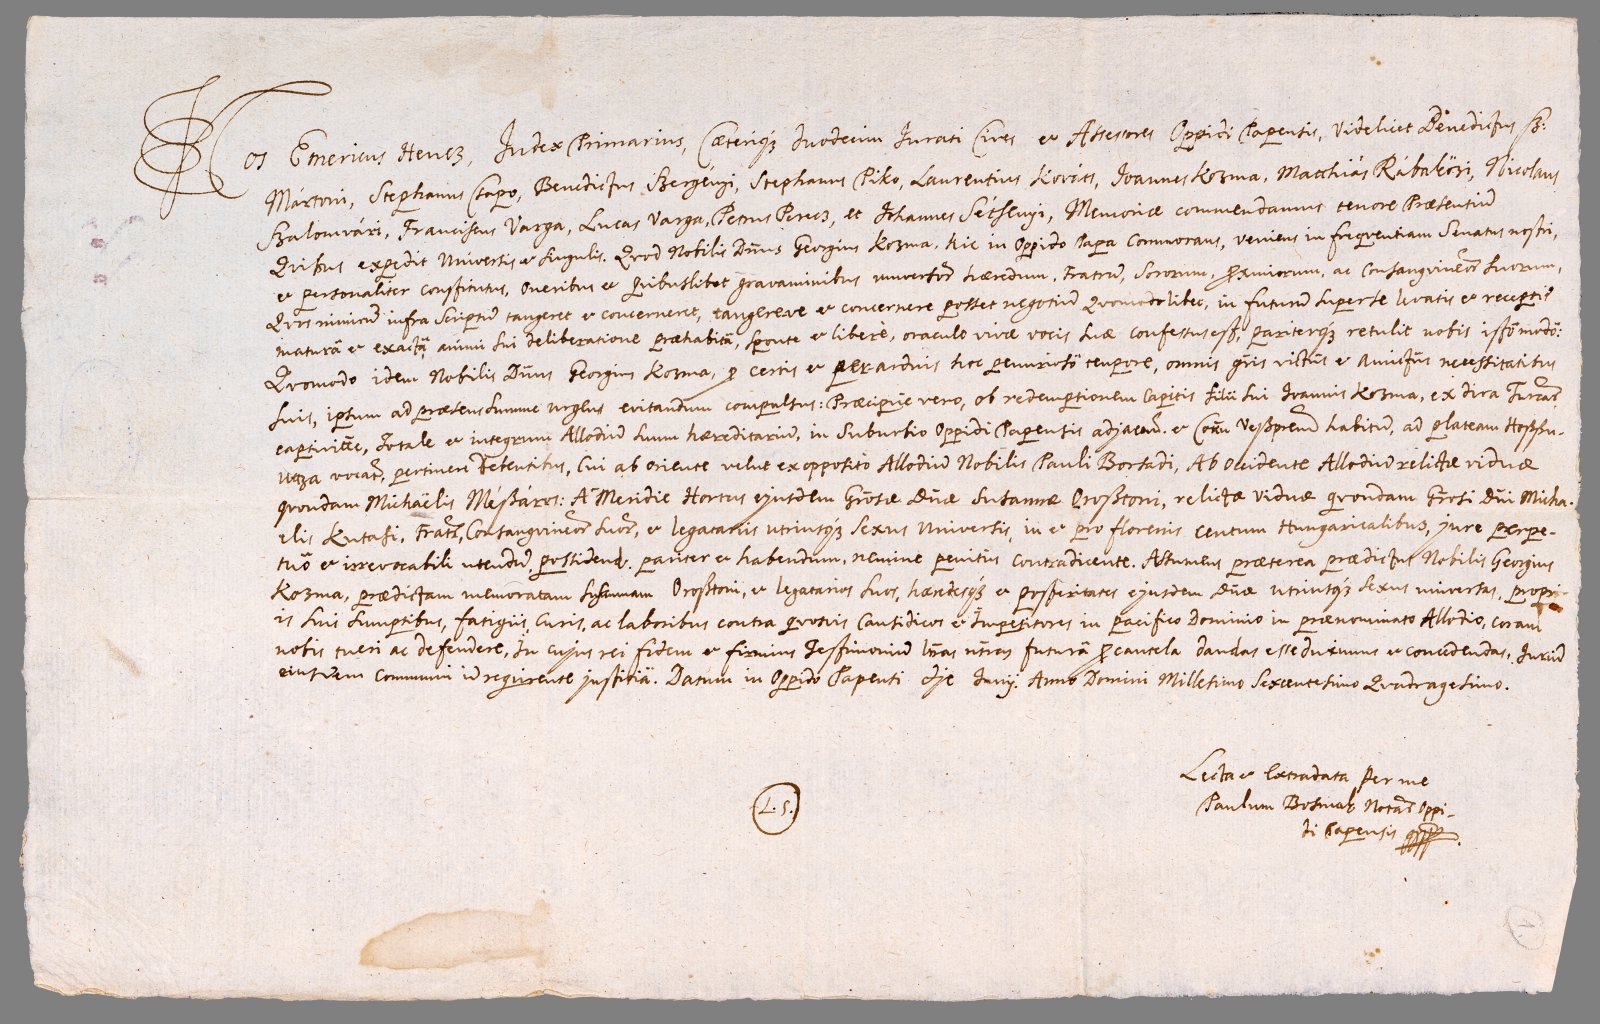 Nos Emericus Hencz, Iudex Primarius, Cæteriqz duodecim Iurati Cives et Assessores Oppidi Papensis, Videlicet Benedictus Sz:
Mártoni, Stephanus Csapo, Benedictus Szergényi, Stephanus Piko, Laurentius Kováts, Joannes Kozma, Matthiás Rábaköri, Nicolaus
Szalomvári, Franciscus Varga, Lucas Varga, Petrus Perecz, et Johannes Sétsenyi, Memoriæ commendamus tenore Præsentium
Qvibus expedit Universis et singulis. Qvod Nobilis Dnus Georgius Kozma, hic in Oppido Papa Commorans, veniens in freqventiam Senatus nostri,
et personaliter constitutus, Oneribus et Qvibuslibet gravaminibus universor hæredum, Fratrū, Sororum, proximorum, ac Consangvineor suorum,
Qvos nimirū infra scriptū tangeret et concerneret, tangereve et concernere posset negotiū Qvomodolibet, in futurū superse levatis et receptis
maturâ et exactâ animi sui deliberatione præhabitâ, sponte et liberè, oraculo vivæ vocis suæ confessus est, pariterqz retulit nobis istō modō:
Qvomodo idem Nobilis Dnus Georgius Kozma, pro certis et per arduis hoc penuriosō tempore, omnis gñis victûs et amictûs necessitatibus
suis, ipsum ad præsens summe urgtus evitandum compulsus: Præcipuè vero, ob redemptionem Capitis filii sui Joannis Kozma, ex dira Turcar
captivitte, Totale et integrum Allodiū suum hæreditariū, in Suburbio Oppidi Papensis adjacen. et Cottu Veszprem habitū, ad plateam Hoszszu-
utza vocat, pertineri debentibus, Cui ab oriente velut ex opposito Allodiū Nobilis Pauli Borsadi, Ab Occidente Allodiū relictæ viduæ
qvondam Michaëlis Mészáros: A Meridie Hortus ejusdem Grosæ Dnæ Susannæ Oroßtoni, relictæ viduæ qvondam Grosi Dni Micha-
elis Kutasi, Fratr, Consangvineor suor, et legatariis utriusqz sexus Universis, in et pro florenis centum Hungaricalibus, jure perpe-
tuō et irrevocabili utendū, possidend. pariter et habendum, nemine penitùs contradicente. Assumens præterea prædictus Nobilis Georgius
Kozma, prædictam memoratam Susannam Oroßtoni, et legatarios suos, hæredesqz et posteritates ejusdem Dnæ utriusqz sexus universas, propri-
is suis sumptibus, fatigiis, Curis, ac laboribus contra qvosvis Causidicos et Impetitores in pacifico Dominio in prænominato Allodio, coram
nobis tueri ac defendere, In cujus rei fidem et firmius Testimoniū lras nras futurâ pro cautela dandas esse duximus et concedendas, Jurium
eiusdem communi id reqirente justitiâ. Datum in Oppido Papensi die Junij. Anno Domini Millesimo Sexcentesimo Qvadragesimo.
Lecta et Extradata Per me
Paulum Bosnak Notar Oppi-
di Papensis
L. S.